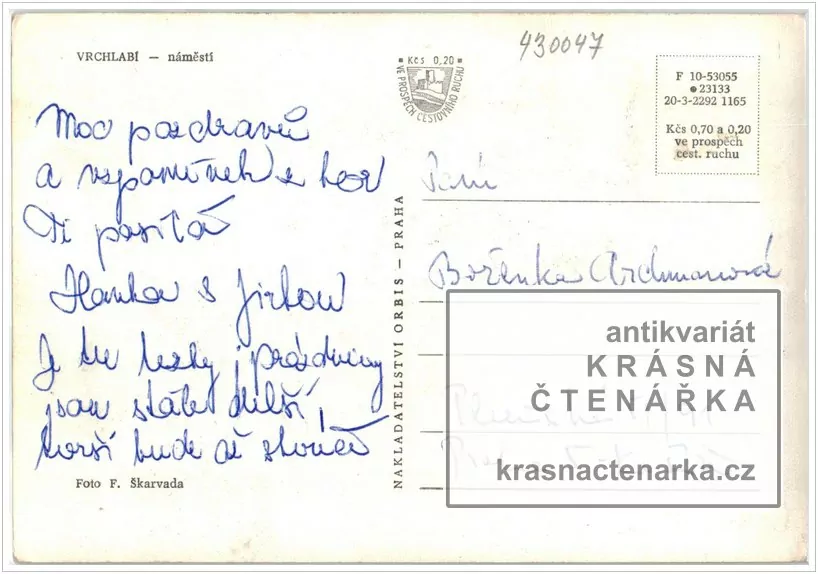 VRCHLABÍ — náměstí
Moc pozdravů
a vzpomínek z hor
Ti posílá
Hanka s Jirkou
Je tu hezky, prázdniny
jsou stále delší,
horší bude až skončí
Foto F. Škarvada
NAKLADATELSTVÍ ORBIS — PRAHA
430047
Kčs 0,20
VE PROSPĚCH CESTOVNÍHO RUCHU
F 10-53055
23133
20-3-2292 1165
Kčs 0,70 a 0,20
ve prospěch
cest. ruchu
Paní
Boženka
antikvariát
KRÁSNÁ
ČTENÁŘKA
krasnactenarka.cz